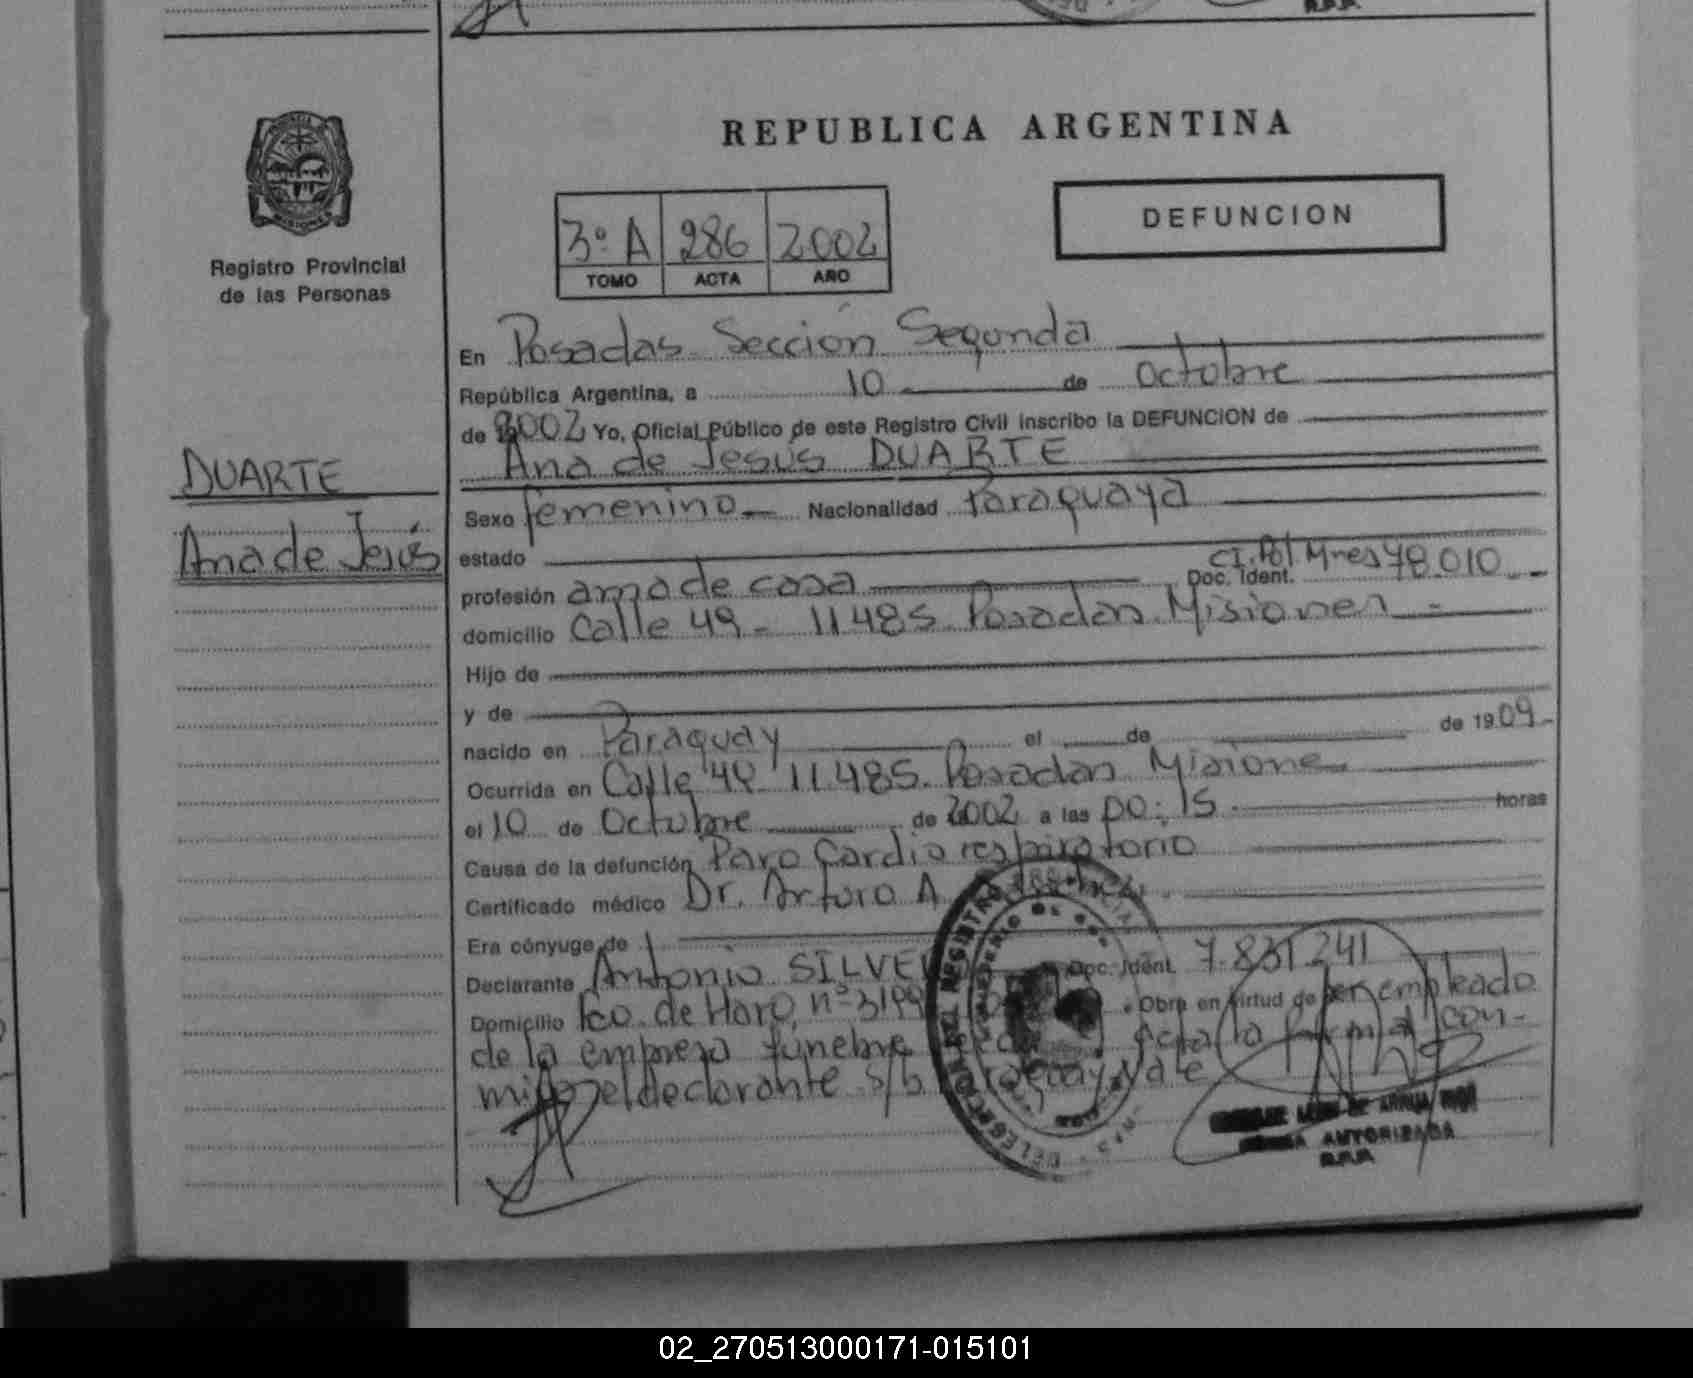 REPUBLICA ARGENTINA
DEFUNCION
3º A 286 2002
TOMO ACTA AÑO
Registro Provincial
de las Personas
DUARTE
Ana de Jesús
En Posadas Sección Segunda
República Argentina, a 10 de Octubre
de 2002 Yo, Oficial Público de este Registro Civil inscribo la DEFUNCION de
Ana de Jesús DUARTE
Sexo femenino Nacionalidad Paraguaya
estado
profesión ama de casa Doc. Ident. CI. Pol Mnes 78.010
domicilio Calle 49 - 11.485 Posadas Misiones
Hijo de
y de
nacido en Paraguay el de de 1909
Ocurrida en Calle 49 11.485 Posadas Misiones
el 10 de Octubre de 2002 a las 00:15 horas
Causa de la defunción Paro Cardio respiratorio
Certificado médico Dr. Arturo A.
Era cónyuge de
Declarante Antonio SILVE Doc. Ident. 7.831241
Domicilio Fco. de Haro nº 3199 Obra en virtud de ser empleado
de la empresa fúnebre acta la firma con-
migo el declarante s/b
AUTORIZADA
R.P.P.
02_270513000171-015101